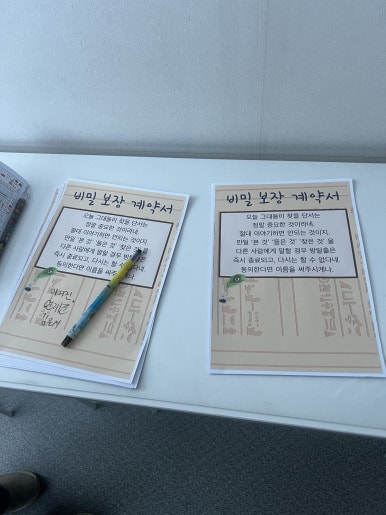 비밀 보장 계약서
오늘 그대들이 찾을 단서는
정말 중요한 것이라네.
절대 이야기하면 안되는 것이지.
만일 '본 것' '들은 것' '찾은 것' 을
다른 사람에게 말할 경우 방탈출은
즉시 종료되고, 다시는 할 수 없다네.
동의한다면 이름을 써주시게나.
비밀 보장 계약서
오늘 그대들이 찾을 단서는
정말 중요한 것이라네.
절대 이야기하면 안되는 것이지.
만일 '본 것' '들은 것' '찾은 것' 을
다른 사람에게 말할 경우 방탈출은
즉시 종료되고, 다시는 할 수 없다네.
동의한다면 이름을 써주시게나.